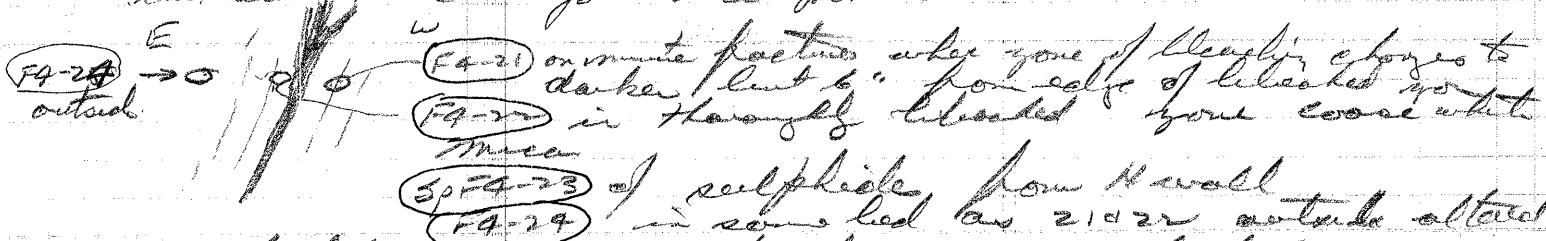 E
W
F4-24 → outside
F4-21 on minute fractures where zone of bleaching changes to
darker but 6" from edge of bleached zone
F4-22 in thoroughly bleached zone coarse white
mica
Sp F4-23 of sulphide from N wall
F4-24 in same bed as 21 & 22 outside altered